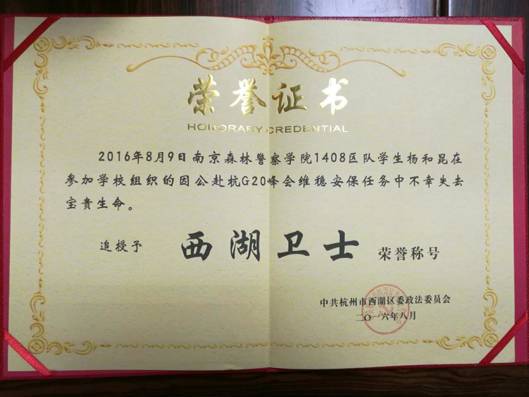 荣誉证书
HONORARY CREDENTIAL
2016年8月9日南京森林警察学院1408区队学生杨和昆在
参加学校组织的因公赴杭G20峰会维稳安保任务中不幸失去
宝贵生命。
追授予 西湖卫士 荣誉称号
中共杭州市西湖区委政法委员会
二〇一六年八月